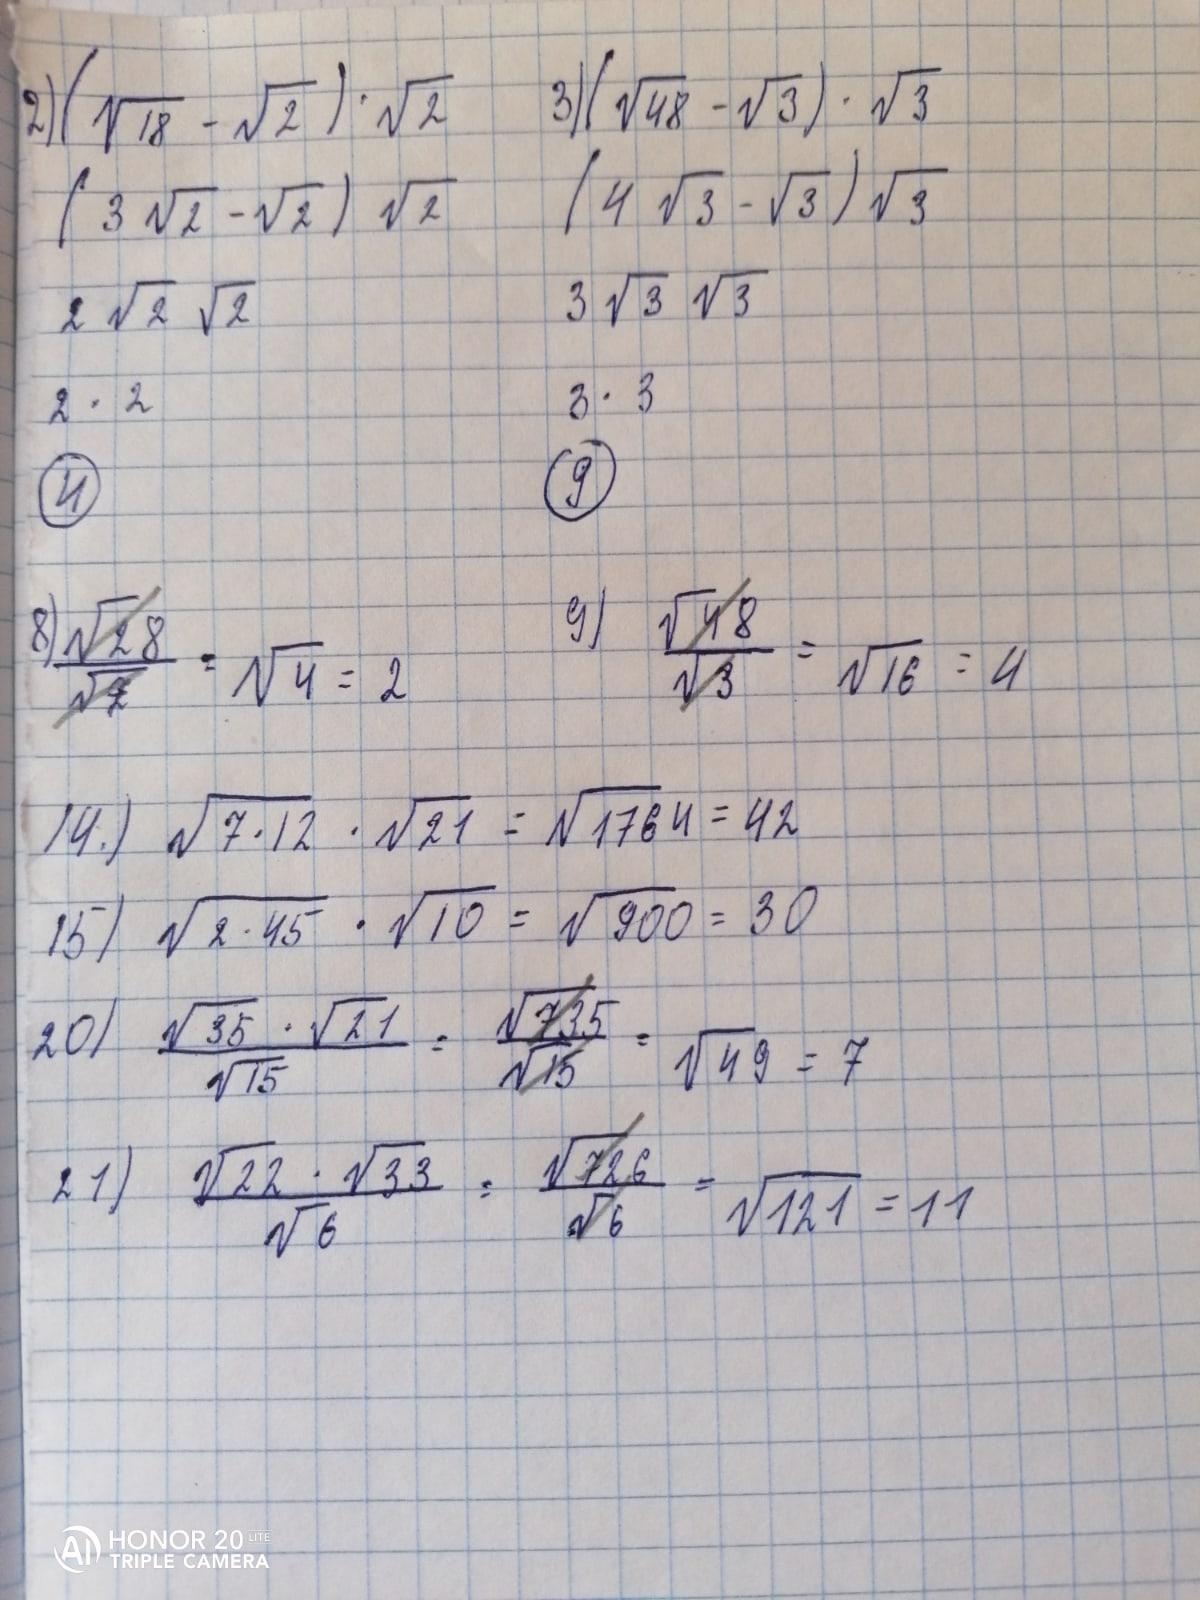 2) (√18 - √2) · √2
(3√2 - √2) √2
2 √2 √2
2 · 2
4
3) (√48 - √3) · √3
(4 √3 - √3) √3
3 √3 √3
3 · 3
9
8) √28 / √7 = √4 = 2
9) √48 / √3 = √16 = 4
14.) √7·12 · √21 = √1764 = 42
15) √2·45 · √10 = √900 = 30
20) √35 · √21 / √15 = √735 / √15 = √49 = 7
21) √22 · √33 / √6 = √726 / √6 = √121 = 11
AI HONOR 20 LITE
TRIPLE CAMERA